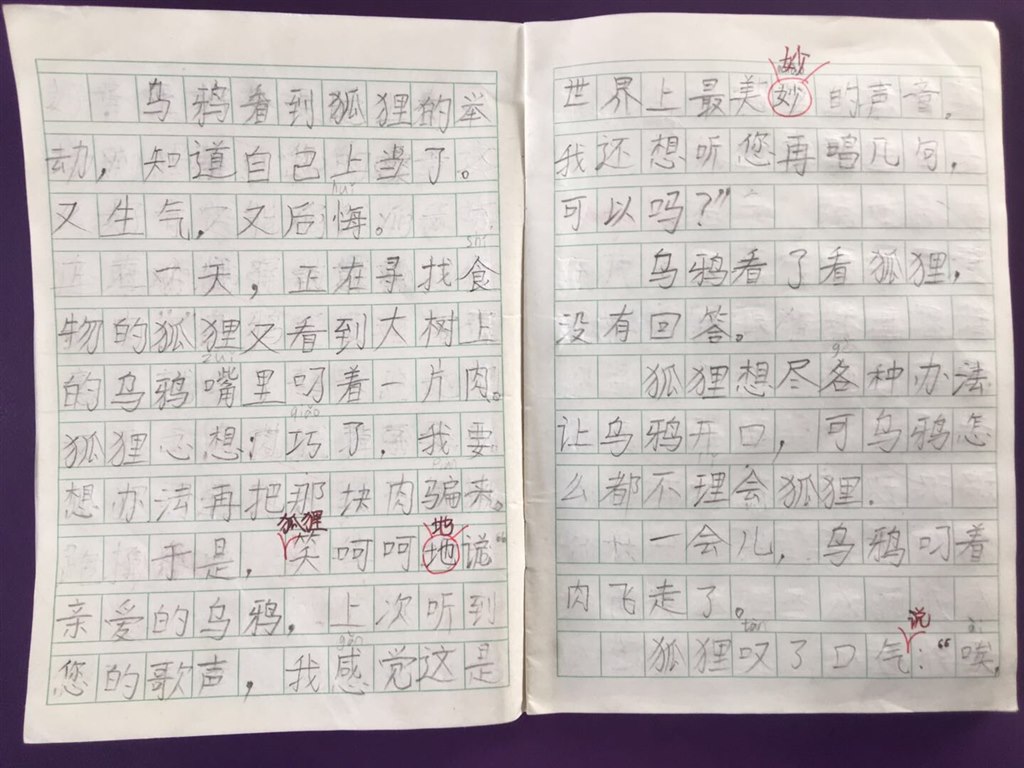 乌鸦看到狐狸的举
动，知道自己上当了。
huǐ
又生气，又后悔。
shí
一天，正在寻找食
物的狐狸又看到大树上
zuǐ
的乌鸦嘴里叼着一片肉。
qiǎo
狐狸心想：巧了，我要
piàn
想办法再把那块肉骗来。
狐狸
地
于是，笑呵呵地说“
亲爱的乌鸦，上次听到
gǎn
您的歌声，我感觉这是
妙
世界上最美妙的声音，
我还想听您再唱几句，
可以吗？”
乌鸦看了看狐狸，
没有回答。
gè
狐狸想尽各种办法
让乌鸦开口，可乌鸦怎
么都不理会狐狸．
一会儿，乌鸦叼着
肉飞走了。
说
tàn
āi
狐狸叹了口气：“唉，